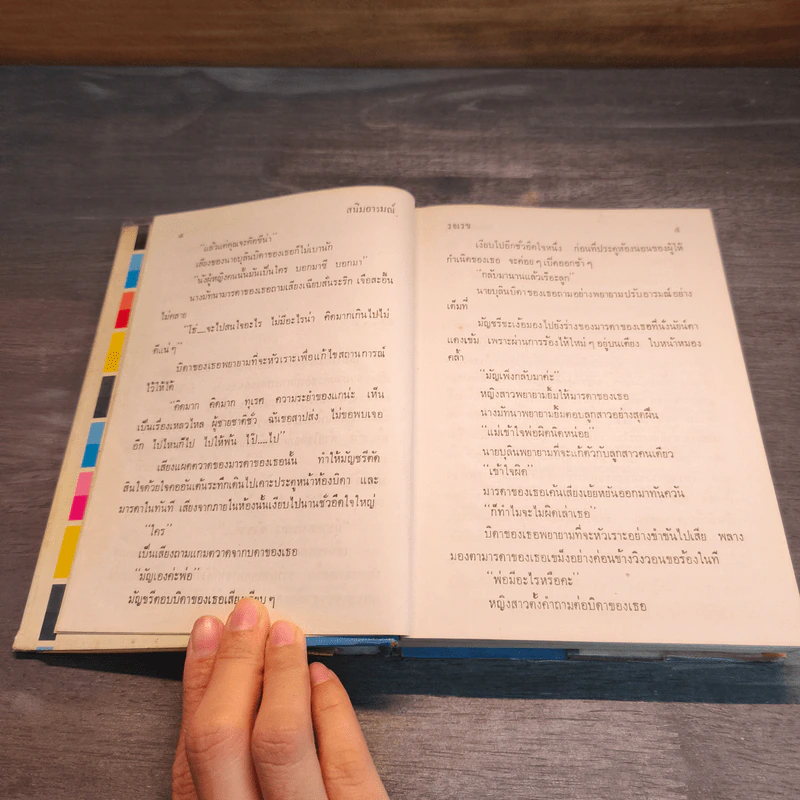 ๔ สนิมอารมณ์
“แล้วแต่คุณจะคิดซีน่า”
เสียงของนายบุลินบิดาของเธอก็ไม่เบานัก
“นังผู้หญิงคนนั้นมันเป็นใคร บอกมาซี บอกมา”
นางมัทนามารดาของเธอถามเสียงเฉียบสั่นระริก เจือสะอื้น
ไม่คลาย
“โธ่.....จะไปสนใจอะไร ไม่มีอะไรน่า คิดมากเกินไปไม่
ดีแน่ๆ”
บิดาของเธอพยายามที่จะหัวเราะเพื่อแก้ไขสถานการณ์
ไว้ให้ได้
“คิดมาก คิดมาก ทุเรศ ความระยำของแกน่ะ เห็น
เป็นเรื่องเหลวไหล ผู้ชายชาติชั่ว ฉันขอสาปส่ง ไม่ขอพบเจอ
อีก ไปไหนก็ไป ไปให้พ้น ไป๊.....ไป”
เสียงแผดตวาดของมารดาของเธอนั้น ทำให้มัญชรีตัด
สินใจด้วยใจคออันเต้นระทึกเดินไปเคาะประตูหน้าห้องบิดา และ
มารดาในทันที เสียงจากภายในห้องนั้นเงียบไปนานชั่วอึดใจใหญ่
“ใคร”
เป็นเสียงถามแกมตวาดจากบิดาของเธอ
“มัญเองค่ะพ่อ”
มัญชรีตอบบิดาของเธอเสียงเรียบๆ
รจเรข ๕
เงียบไปอีกชั่วอึดใจหนึ่ง ก่อนที่ประตูห้องนอนของผู้ให้
กำเนิดของเธอ จะค่อยๆ เปิดออกช้าๆ
“กลับมานานแล้วเรอะลูก”
นายบุลินบิดาของเธอถามอย่างพยายามปรับอารมณ์อย่าง
เต็มที่
มัญชรีชะเง้อมองไปยังร่างของมารดาของเธอที่นั่งนัยน์ตา
แดงเข้ม เพราะผ่านการร้องไห้ใหม่ๆ อยู่บนเตียง ใบหน้าหมอง
คล้ำ
“มัญเพิ่งกลับมาค่ะ”
หญิงสาวพยายามยิ้มให้มารดาของเธอ
นางมัทนาพยายามยิ้มตอบลูกสาวอย่างสุดฝืน
“แม่เข้าใจพ่อผิดนิดหน่อย”
นายบุลินพยายามที่จะแก้ตัวกับลูกสาวคนเดียว
“เข้าใจผิด”
มารดาของเธอเค้นเสียงเย้ยหยันออกมาทันควัน
“ก็ทำไมจะไม่ผิดเล่าเธอ”
บิดาของเธอพยายามที่จะหัวเราะอย่างขำขันไปเสีย พลาง
มองตามารดาของเธอเขม็งอย่างค่อนข้างวิงวอนขอร้องในที
“พ่อมีอะไรหรือคะ”
หญิงสาวตั้งคำถามต่อบิดาของเธอ